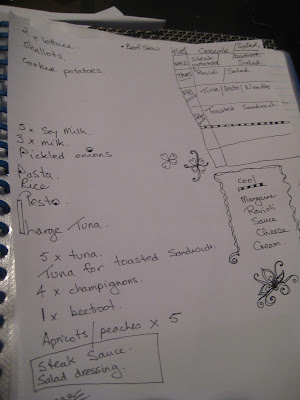 2 x lettuce
Shallots.
Cooked potatoes.
+ Beef Stew
5 x Soy Milk.
3 x milk.
Pickled onions
Pasta.
Rice
Pesto.
Large Tuna.
5 x tuna.
Tuna for toasted Sandwich.
4 x champignons.
1 x beetroot.
Apricots/peaches x 5
Steak Sauce.
Salad dressing.
TUES Casserole / Salad.
WED Steak beetroot
Salad
THURS Ravioli / Salad
FRI Tuna/Pesto/Noodle
Toasted Sandwich
Cool
Margarine
Ravioli
Sauce
Cheese
Cream.